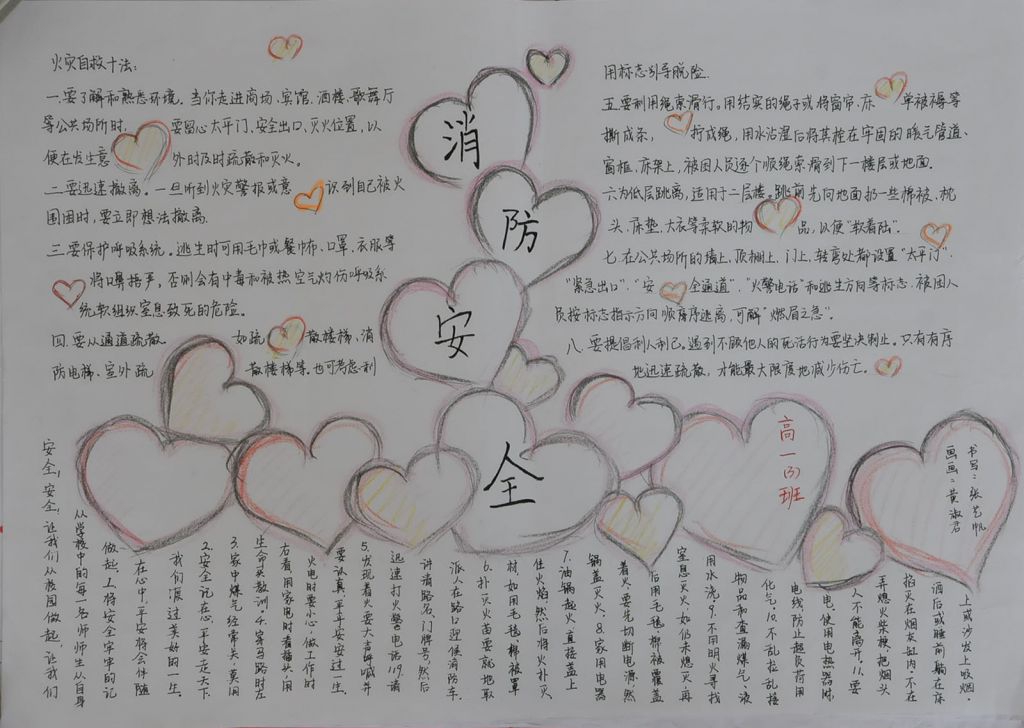 火灾自救十法:
一.要了解和熟悉环境。当你走进商场、宾馆、酒楼、歌舞厅
等公共场所时,要留心太平门、安全出口、灭火位置,以
便在发生意外时及时疏散和灭火。
二.要迅速撤离。一旦听到火灾警报或意识到自己被火
围困时,要立即想法撤离.
三.要保护呼吸系统。逃生时可用毛巾或餐巾布、口罩、衣服等
将口鼻捂严,否则会有中毒和被热空气灼伤呼吸系
统软组织窒息致死的危险。
四.要从通道疏散. 如疏散楼梯、消
防电梯、室外疏散楼梯等。也可考虑利
消
防
安
全
用标志引导脱险.
五.要利用绳索滑行。用结实的绳子或将窗帘、床单被褥等
撕成条,拧成绳,用水沾湿后将其拴在牢固的暖气管道、
窗框、床架上,被困人员逐个顺绳索滑到下一楼层或地面.
六.为低层跳离,适用于二层楼。跳前先向地面扔一些棉被、枕
头、床垫、大衣等柔软的物品,以便“软着陆”.
七.在公共场所的墙上、顶棚上、门上、转弯处都设置“太平门”.
“紧急出口”.“安全通道”.“火警电话”和逃生方向等标志.被困人
员按标志指示方向顺序逃离,可解“燃眉之急”.
八.要提倡利人利己。遇到不顾他人的死活行为要坚决制止。只有有序
地迅速疏散,才能最大限度地减少伤亡。
高一(3)班
书写:张艺帆
画画:黄淑君
安全,安全,让我们从校园做起,让我们
从学校中的每一名师师生从自身
做起.1.将安全牢牢的记
在心中,平安将会伴随
我们渡过美好的一生.
2.安全记在心,平安走天下
3.家中煤气经常关,莫用
生命买教训 4.穿马路时左
右看,用家电时看插头,用
火电时要小心,做工作时
要认真,平平安安过一生.
5.发现着火要大声呼喊并
迅速打火警电话119.请
讲清路名、门牌号,然后
派人在路口迎候消防车.
6.扑灭火苗要就地取
材,如用毛毯、棉被罩
住火焰,然后将火扑灭
7.油锅起火直接盖上
锅盖灭火.8.家用电器
着火要先切断电源,然
后用毛毯、棉被覆盖
窒息灭火,如仍未熄灭,再
用水浇 9.不用明火寻找
物品和查漏煤气、液
化气.10.不乱拉乱接
电线,防止超负荷用
电.使用电热器时,
人不能离开.11.要
弄熄火柴梗,把烟头
掐灭在烟灰缸内,不在
酒后或睡前躺在床
上或沙发上吸烟.